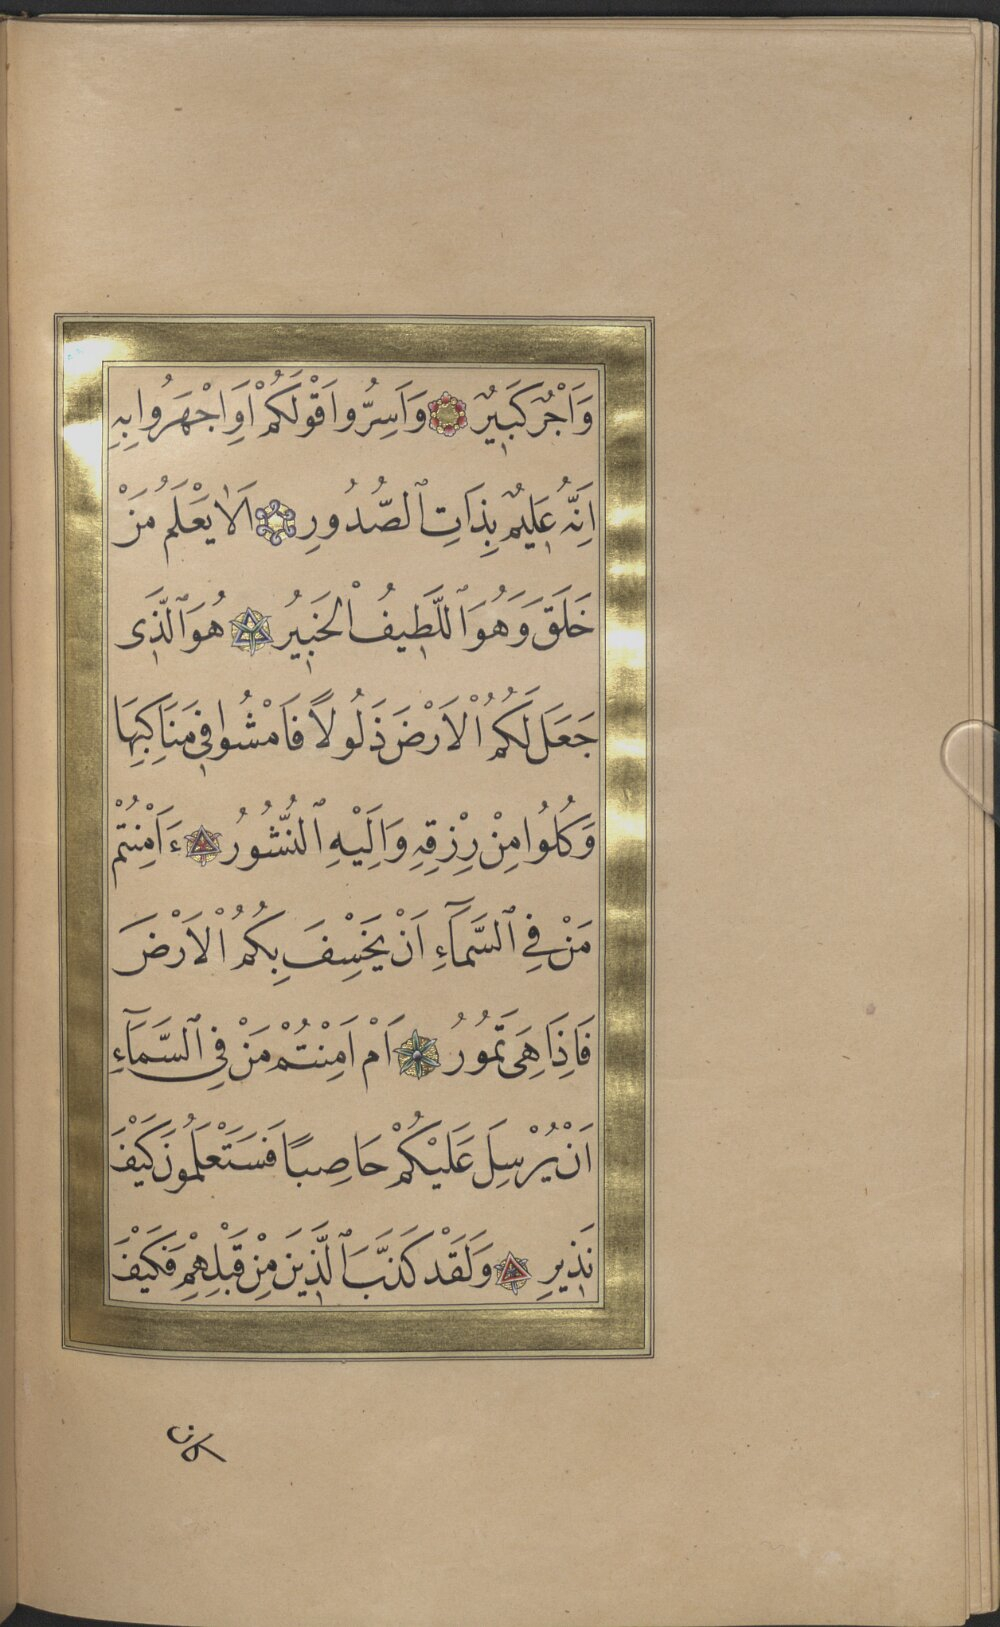 وَاَجْرٌ كَبٖيرٌ وَاَسِرُّوا قَوْلَكُمْ اَوِ اجْهَرُوا بِهٖ
اِنَّهُ عَلٖيمٌ بِذَاتِ الصُّدُورِ اَلَا يَعْلَمُ مَنْ
خَلَقَ وَهُوَ اللَّطٖيفُ الْخَبٖيرُ هُوَ الَّذٖى
جَعَلَ لَكُمُ الْاَرْضَ ذَلُولًا فَامْشُوا فٖى مَنَاكِبِهَا
وَكُلُوا مِنْ رِزْقِهٖ وَاِلَيْهِ النُّشُورُ ءَاَمِنْتُمْ
مَنْ فِى السَّمَآءِ اَنْ يَخْسِفَ بِكُمُ الْاَرْضَ
فَاِذَا هِىَ تَمُورُ اَمْ اَمِنْتُمْ مَنْ فِى السَّمَآءِ
اَنْ يُرْسِلَ عَلَيْكُمْ حَاصِبًا فَسَتَعْلَمُونَ كَيْفَ
نَذٖيرِ وَلَقَدْ كَذَّبَ الَّذٖينَ مِنْ قَبْلِهِمْ فَكَيْفَ
كان